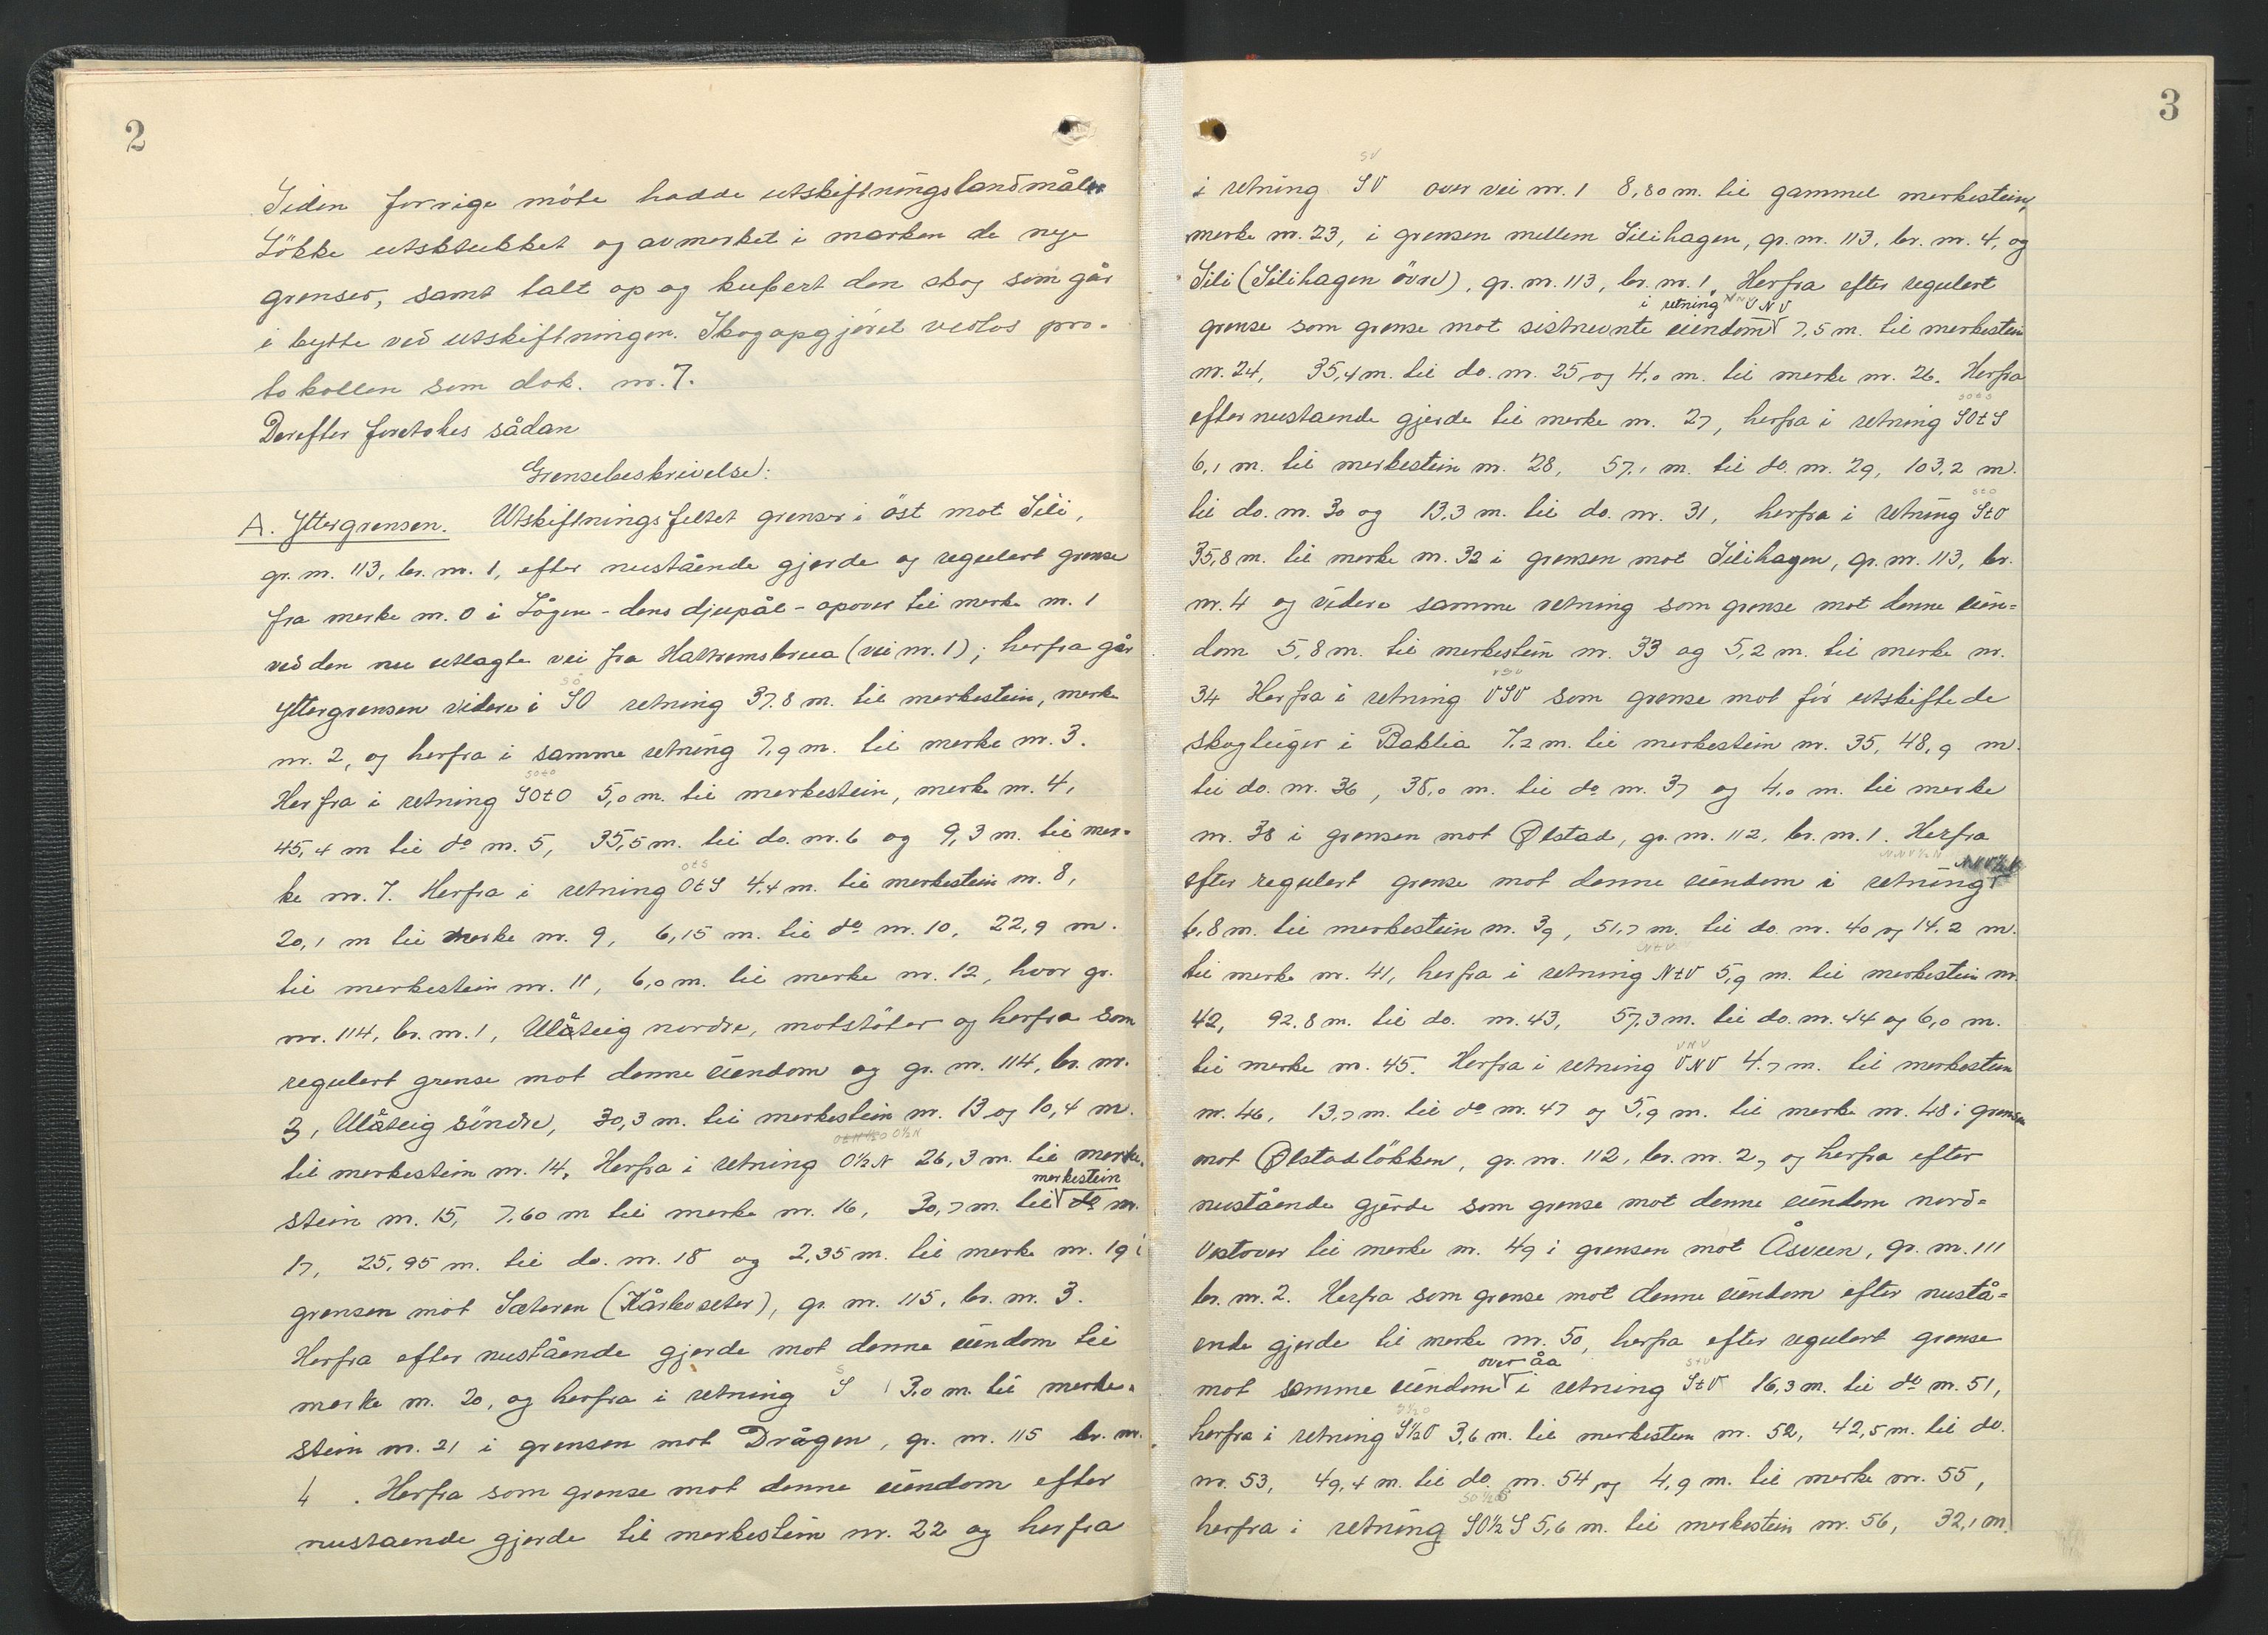 2
Siden forrige möte hadde utskiftningslandmåler
Lökke utstukket og avmerket i marken de nye
grenser, samt talt op og kubert den skog som går
i bytte ved utskiftningen. Skogopgjöret vedlos pro-
tokollen som dok. nr. 7.
Derefter foretokes sådan
Grensebeskrivelse:
A. Yttergrensen. Utskiftningsfeltet grenser i öst mot Sili,
gr. nr. 113, br. nr. 1, efter nustående gjerde og regulert grense
fra merke nr. 0 i Lågen - dens djupål - opover til merke nr. 1
ved den nu utlagte vei fra (vei nr. 1); herfra går
sö
Yttergrensen videre i SO retning 37.8 m. til merkestein, merke
nr. 2, og herfra i samme retning 7,9 m. til merke nr. 3.
soto
Herfra i retning SOtO 5,0 m. til merkestein, merke nr. 4,
45,4 m til do nr. 5, 35,5 m. til do. nr. 6 og 9,3 m. til mer-
ots
ke nr. 7. Herfra i retning OtS 4,4 m. til merkestein nr. 8,
20,1 m til merke nr. 9, 6,15 m. til do nr. 10, 22,9 m.
til merkestein nr. 11, 6,0 m. til merke nr. 12, hvor gr.
nr. 114, br. nr. 1, Ulåteig nordre, motstöter og herfra som
regulert grense mot denne eiendom og gr. nr. 114, br. nr.
3, Ulåteig söndre, 30,3 m. til merkestein nr. 13 og 10,4 m.
O½N
til merkestein nr. 14. Herfra i retning O½N 26,3 m. til merke-
merkestein
stein nr. 15, 7.60 m til merke nr. 16, 30,7 m. til do nr.
17, 25,95 m. til do. nr. 18 og 2,35 m. til merke nr. 19 i
grensen mot Sæteren (Kårboseter), gr. nr. 115, br. nr. 3.
Herfra efter nustående gjerde mot denne eiendom til
S
merke nr. 20, og herfra i retning S 13.0 m. til merke-
stein nr. 21 i grensen mot Drågen, gr. nr. 115 br. nr.
4. Herfra som grense mot denne eiendom efter
nustaende gjerde til merkestein nr. 22 og herfra
3
SV
i retning SV over vei nr. 1 8,80 m. til gammel merkestein,
merke nr. 23, i grensen mellem Silihagen, gr. nr. 113, br. nr. 4, og
Sili (Silihagen övre), gr. nr. 113, br. nr. 1. Herfra efter regulert
i retning VNV
grense som grense mot sistnevnte eiendom 7,5 m. til merkestein
nr. 24, 35,4 m. til do. nr. 25 og 4,0 m. til merke nr. 26. Herfra
sots
efter nustaende gjerde til merke nr. 27, herfra i retning SOtS
6,1 m. til merkestein nr. 28, 57,1 m. til do. nr. 29, 103,2 m.
sto
til do. nr. 30 og 13,3 m. til do. nr. 31, herfra i retning StO
35,8 m. til merke nr. 32 i grensen mot Silihagen, gr. nr. 113, br.
nr. 4 og videre samme retning som grense mot denne eien-
dom 5,8 m. til merkestein nr. 33 og 5,2 m. til merke nr.
vsv
34 Herfra i retning VSV som grense mot för utskiftede
skogteiger i Baklia 7.2 m. til merkestein nr. 35, 48,9 m.
til do. nr. 36, 38,0 m. til do nr. 37 og 4,0 m. til merke
nr. 38 i grensen mot Ølstad, gr. nr. 112, br. nr. 1. Herfra
NNV½N
efter regulert grense mot denne eiendom i retning
6,8 m. til merkestein nr. 39, 51,7 m. til do. nr. 40 og 14.2 m.
NtV
til merke nr. 41, herfra i retning NtV 5,9 m. til merkestein nr.
42, 92.8 m. til do. nr. 43, 57,3 m. til do. nr. 44 og 6,0 m.
VNV
til merke nr. 45. Herfra i retning VNV 4.7 m. til merkestein
nr. 46, 13,7 m. til do nr. 47 og 5,9 m. til merke nr. 48 i grensen
mot Ølstadlökken, gr. nr. 112, br. nr. 2, og herfra efter
nustående gjerde som grense mot denne eiendom nord-
vestover til merke nr. 49 i grensen mot Åsveen, gr. nr. 111
br. nr. 2. Herfra som grense mot denne eiendom efter nustå-
ende gjerde til merke nr. 50, herfra efter regulert grense
over åa StV
mot samme eiendom i retning StV 16,3 m. til do nr. 51,
S½O
herfra i retning S½O 3,6 m. til merkestein nr. 52, 42,5 m. til do.
nr. 53, 49,4 m. til do. nr. 54 og 4,9 m. til merke nr. 55,
SO½S
herfra i retning SO½S 5,6 m. til merkestein nr. 56, 32,1 m.